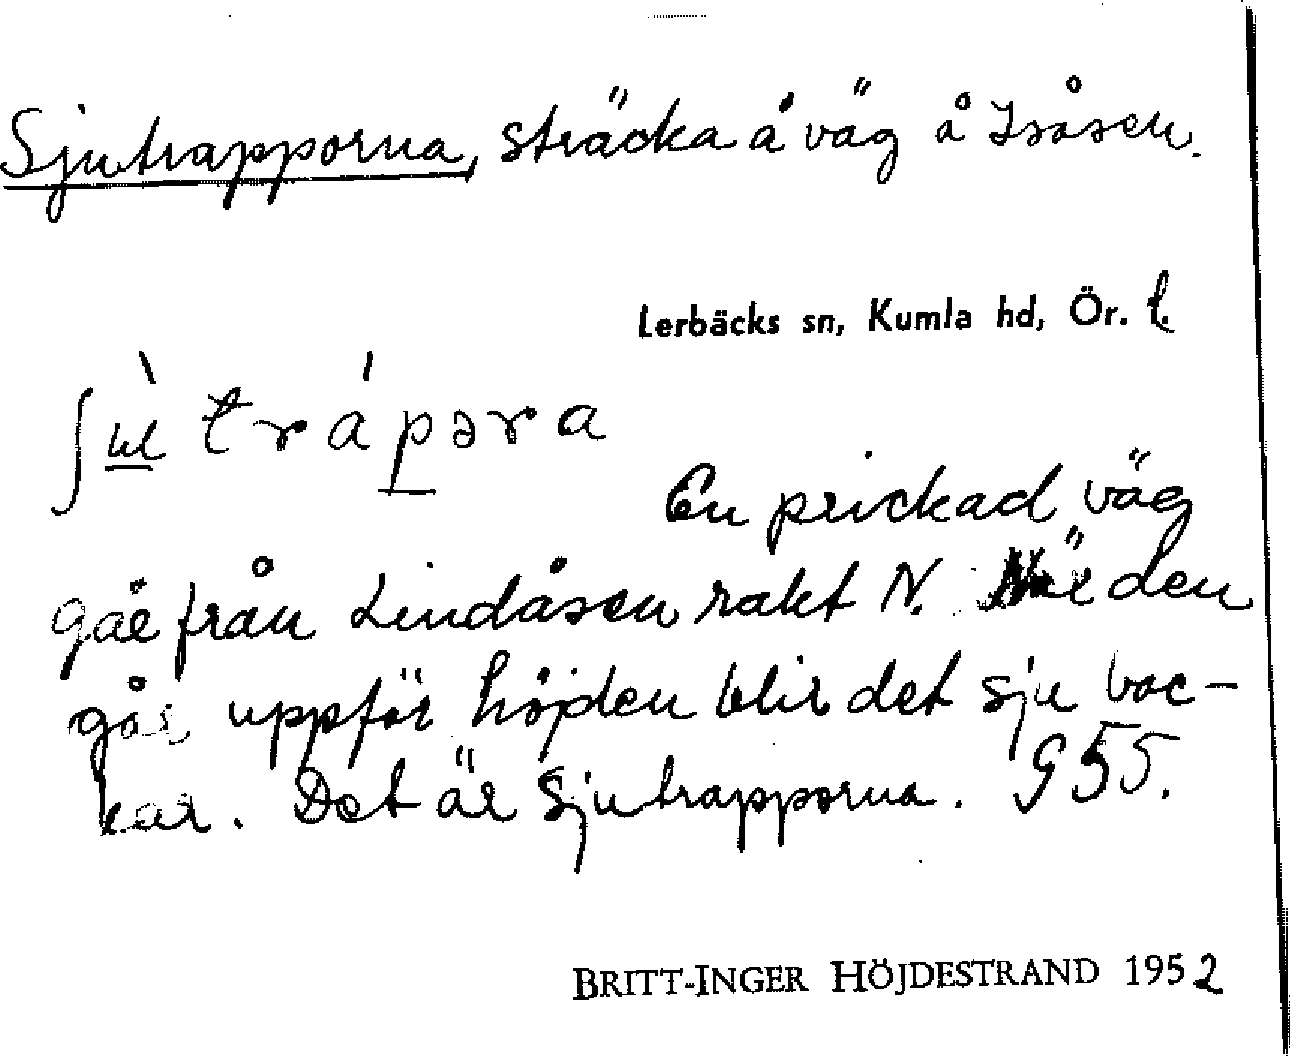 Sjutrapporna, sträcka å väg å Isåsen.
Lerbäcks sn, Kumla hd, Ör. l.
ʃʉ̀ trápəra
En prickad väg
går från Lindåsen rakt N. När den
går uppför höjden blir det sju bac-
kar. Det är Sjutrapporna. G55.
BRITT-INGER HÖJDESTRAND 1952